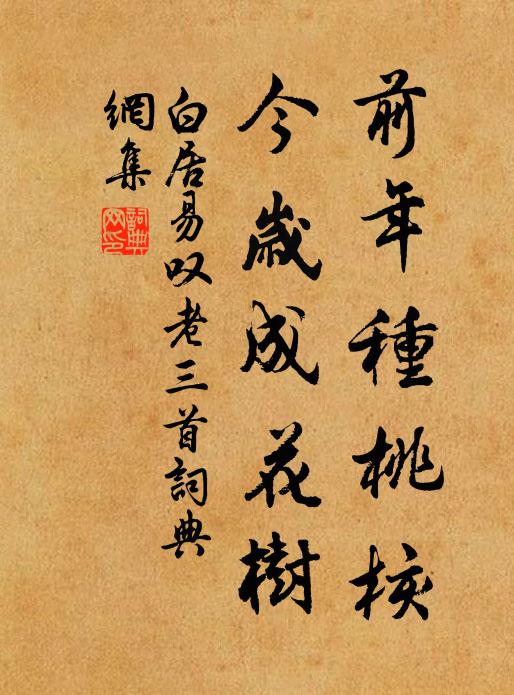 前年種桃核
今歲成花樹
白居易叹老三首詞典
網集
詞典
网印